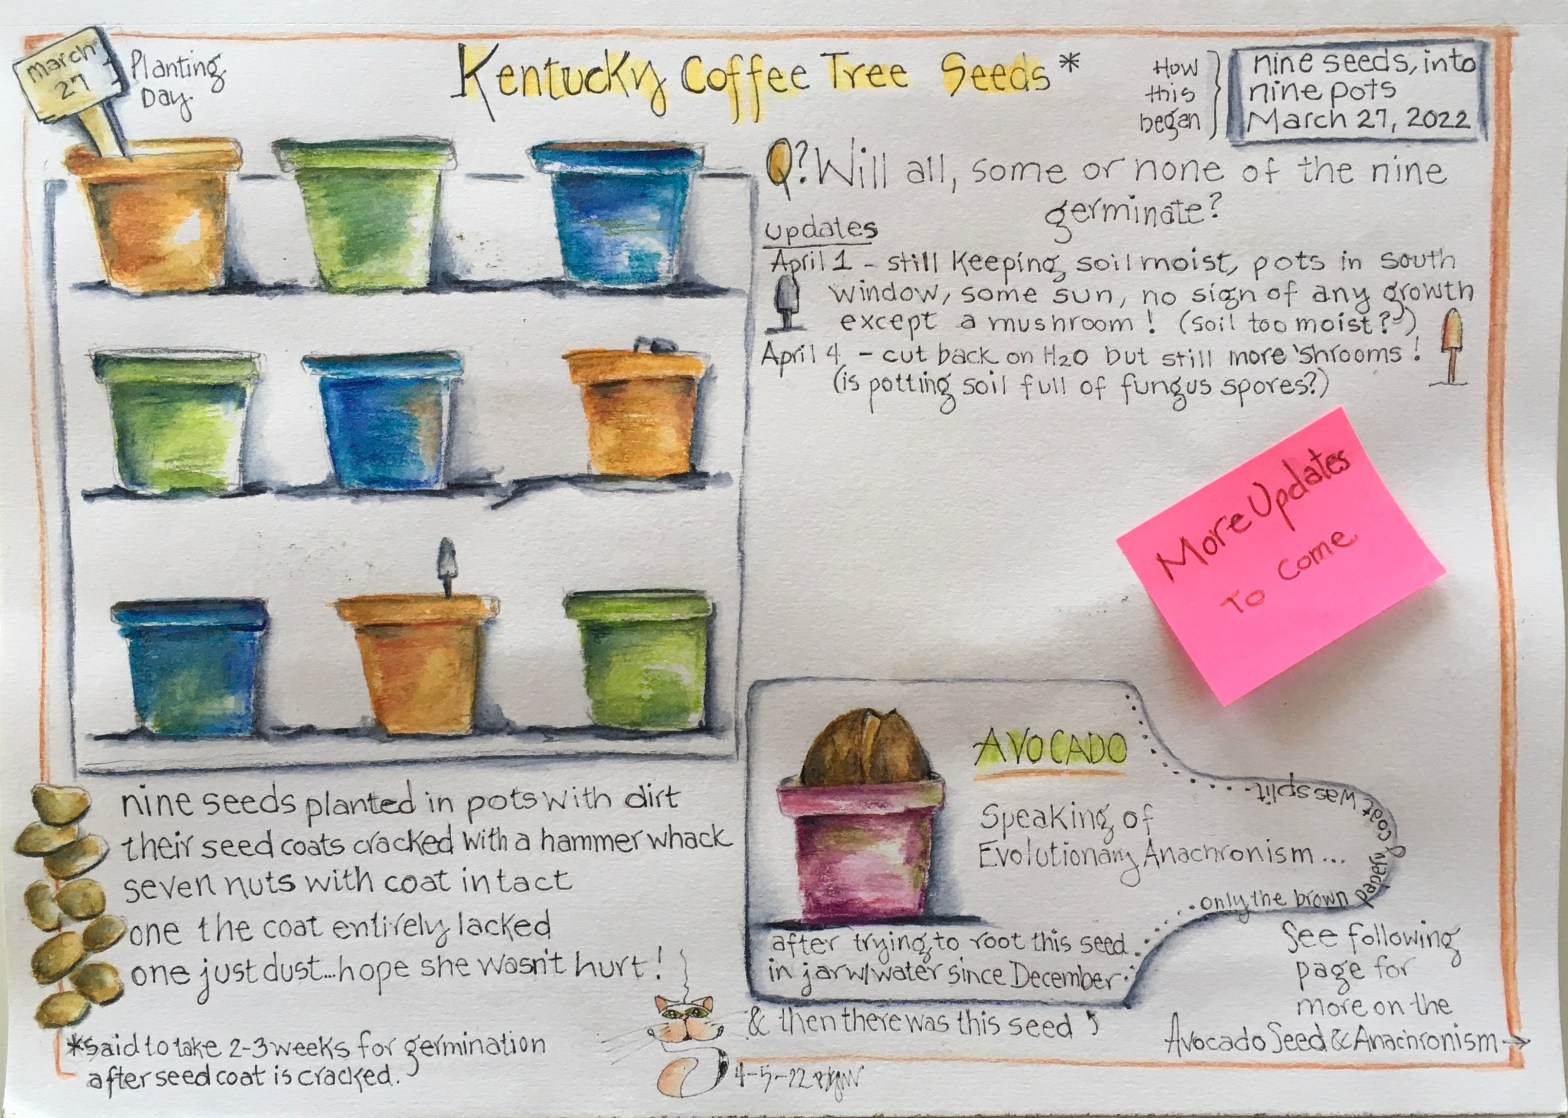 March
27
Planting
Day
Kentucky Coffee Tree Seeds*
How
this
began
nine seeds, into
nine pots
March 27, 2022
Q? Will all, some or none of the nine
germinate?
updates
April 1 - still keeping soil moist, pots in south
window, some sun, no sign of any growth
except a mushroom! (soil too moist?)
April 4 - cut back on H2O but still more 'shrooms!
(is potting soil full of fungus spores?)
More Updates
To Come
nine seeds planted in pots with dirt
their seed coats cracked with a hammer whack
seven nuts with coat intact
one the coat entirely lacked
one just dust...hope she wasn't hurt!
*said to take 2-3 weeks for germination
after seed coat is cracked.
AVOCADO
Speaking of
Evolutionary Anachronism...
after trying to root this seed
in jar w/water since December
only the brown papery coat was split
& then there was this seed
See following
page for
more on the
Avocado Seed & Anachronism →
4-5-22